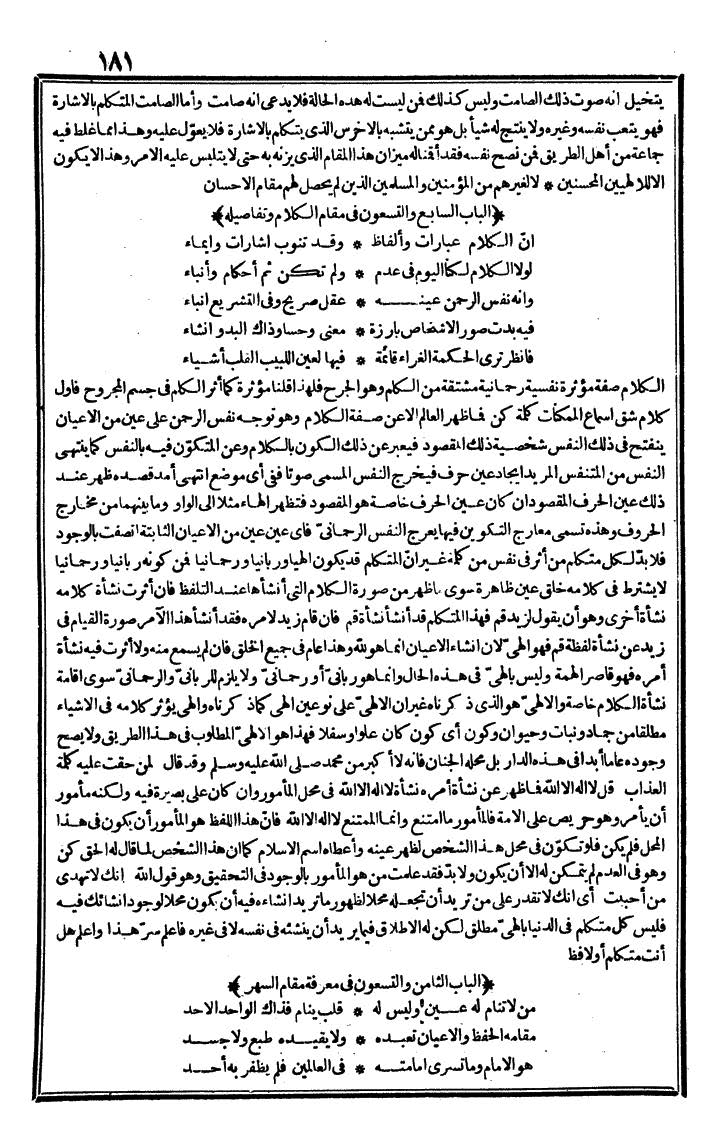 ١٨١
يتخيل انه صوت ذلك الصامت وليس كذلك فمن ليست له هذه الحالة فلا يدعى انه صامت وأما الصامت المتكلم بالاشارة
فهو يتعب نفسه وغيره ولا ينتج له شيأ بل هو ممن يتشبه بالاخرس الذى يتكلم بالاشارة فلا يعوّل عليه وهذا مما غلط فيه
جماعة من أهل الطريق فمن نصح نفسه فقد أقمنا له ميزان هذا المقام الذى يزنه به حتى لا يتلبس عليه الامر وهذا لا يكون
الا للالهيين المحسنين * لا لغيرهم من المؤمنين والمسلمين الذين لم يحصل لهم مقام الاحسان
﴿الباب السابع والتسعون فى مقام الكلام وتفاصيله﴾
انّ الكلام عبارات وألفاظ * وقد تنوب اشارات وايماء
لولا الكلام لكنا اليوم فى عدم * ولم تكن ثم أحكام وأنباء
وانه نفس الرحمن عينه * عقل صريح وفى التشريع انباء
فيه بدت صور الاشخاص بارزة * معنى وحسا وذاك البدو انشاء
فانظر ترى الحكمة الغراء قائمة * فيها لعين اللبيب القلب أشياء
الكلام صفة مؤثرة نفسية رحمانية مشتقة من الكلم وهو الجرح فلهذا قلنا مؤثرة كما أثر الكلم فى جسم المجروح فاول
كلام شق اسماع الممكنات كلمة كن فما ظهر العالم الا عن صفة الكلام وهو توجه نفس الرحمن على عين من الاعيان
ينفتح فى ذلك النفس شخصية ذلك المقصود فيعبر عن ذلك الكون بالكلام وعن المتكوّن فيه بالنفس كما ينتهى
النفس من المتنفس المريد ايجاد عين حرف فيخرج النفس المسمى صوتا ففى أى موضع انتهى أمد قصده ظهر عند
ذلك عين الحرف المقصود ان كان عين الحرف خاصة هو المقصود فتظهر الهاء مثلا الى الواو وما بينهما من مخارج
الحروف وهذه تسمى معارج التكوين فيها يعرج النفس الرحمانىّ فاى عين عين من الاعيان الثابتة اتصفت بالوجود
فلا بدّ لكل متكلم من أثر فى نفس من كلمة غير انّ المتكلم قد يكون الهيا وربانيا ورحمانيا فمن كونه ربانيا ورحمانيا
لا يشترط فى كلامه خلق عين ظاهرة سوى ما ظهر من صورة الكلام التى أنشأها عند التلفظ فان أثرت نشأة كلامه
نشأة أخرى وهو أن يقول لزيد قم فهذا المتكلم قد أنشأ نشأة قم فان قام زيد لامره فقد أنشأ هذا الآمر صورة القيام فى
زيد عن نشأة لفظة قم فهو الهىّ لان انشاء الاعيان انما هو لله وهذا عام فى جميع الخلق فان لم يسمع منه ولا أثرت فيه نشأة
أمره فهو قاصر الهمة وليس بالهىّ فى هذه الحال وانما هو ربانىّ أو رحمانىّ ولا يلزم للربانىّ والرحمانىّ سوى اقامة
نشأة الكلام خاصة والالهىّ هو الذى ذكرناه غير ان الالهىّ على نوعين الهى كما ذكرناه والهى يؤثر كلامه فى الاشياء
مطلقا من جماد ونبات وحيوان وكون أى كون كان علوا وسفلا فهذا هو الالهىّ المطلوب فى هذا الطريق ولا يصح
وجوده عاما أبدا فى هذه الدار بل محله الجنان فانه لا أكبر من محمد صلى الله عليه وسلم وقد قال لمن حقت عليه كلمة
العذاب قل لا اله الا الله فما ظهر عن نشأة أمره نشأة لا اله الا الله فى محل المأمور وان كان على بصيرة فيه ولكنه مأمور
أن يأمر وهو حريص على الامة فالمأمور ما امتنع وانما الممتنع لا اله الا الله فانّ هذا اللفظ هو المأمور أن يكون فى هذا
المحل فلم يكن فلو تكوّن فى محل هذا الشخص لظهر عينه وأعطاه اسم الاسلام كما ان هذا الشخص لما قال له الحق كن
وهو فى العدم لم يتمكن له الا أن يكون ولا بدّ فقد علمت من هو المأمور بالوجود فى التحقيق وهو قول الله انك لا تهدى
من أحببت أى انك لا تقدر على من تريد أن تجعله محلا لظهور ما تريد انشاءه فيه أن يكون محلا لوجود انشائك فيه
فليس كل متكلم فى الدنيا بالهىّ مطلق لكن له الاطلاق فيما يريد أن ينشئه فى نفسه لا فى غيره فاعلم سرّ هذا واعلم هل
أنت متكلم أو لافظ
﴿الباب الثامن والتسعون فى معرفة مقام السهر﴾
من لا تنام له عين وليس له * قلب ينام فذاك الواحد الاحد
مقامه الحفظ والاعيان تعبده * ولا يقيده طبع ولا جسد
هو الامام وما تسرى امامته * فى العالمين فلم يظفر به أحد